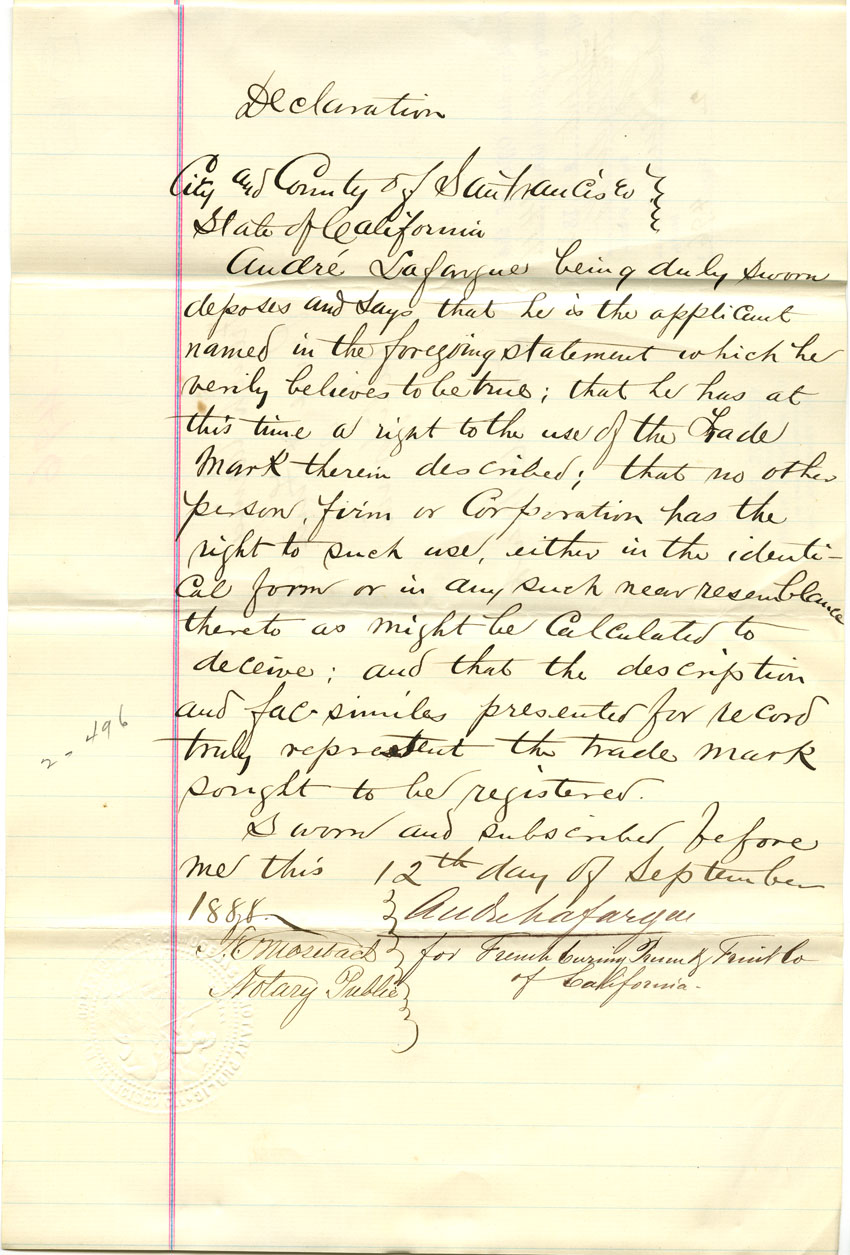 Declaration
City and County of San Francisco
State of California
André Lafargue being duly sworn
deposes and says that he is the applicant
named in the foregoing statement which he
verily believes to be true; that he has at
this time a right to the use of the Trade
Mark therein described; that no other
person, firm or Corporation has the
right to such use, either in the identi-
cal form or in any such near resemblance
thereto as might be Calculated to
deceive; and that the description
and fac-similes presented for record
truly represent the trade mark
sought to be registered.
Sworn and subscribed before
me this 12th day of September
1888. André Lafargue
Notary Public
for French Curing Prune & Fruit Co
of California.
2-496
NOTARY PUBLIC